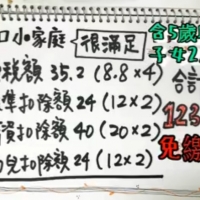 口小家庭 很滿足
稅額 35.2 (8.8×4)
準扣除額 24 (12×2)
資扣除額 40 (20×2)
兒扣除額 24 (12×2)
含5歲
子女2
合計
123
免繳